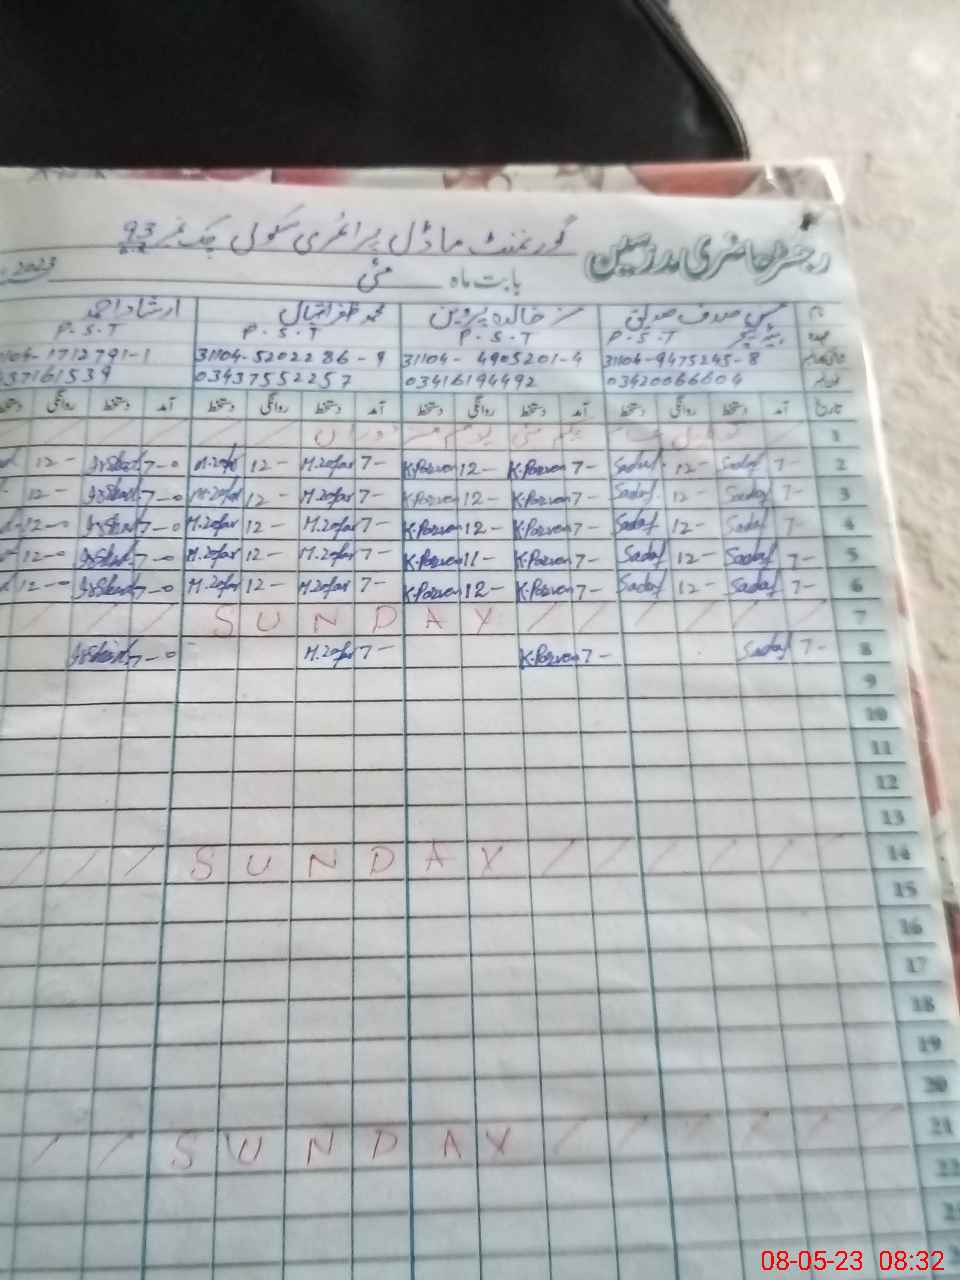 رجسٹر حاضری مدرسین گورنمنٹ ماڈل پرائمری سکول چک نمبر 93
بابت ماہ مئی 2023
نام مس صدف صدیق مسز خالدہ پروین محمد ظفر اقبال ارشاد احمد
عہدہ ہیڈ ٹیچر P.S.T P.S.T P.S.T P.S.T
31104-9475245-8 31104-4905201-4 31104-5202286-9 1104-1712791-1
03420066604 03416194492 03437552257 037161539
تاریخ آمد دستخط روانگی دستخط آمد دستخط روانگی دستخط آمد دستخط روانگی دستخط آمد دستخط روانگی
1 یکم مئی یوم مزدوراں
2 7- Sadaf 12- Sadaf 7- K.Parveen 12- K.Parveen 7- M.Zafar 12- M.Zafar 7-0 Irshad 12-
3 7- Sadaf 12- Sadaf 7- K.Parveen 12- K.Parveen 7- M.Zafar 12- M.Zafar 7-0 Irshad 12-
4 7- Sadaf 12- Sadaf 7- K.Parveen 12- K.Parveen 7- M.Zafar 12- M.Zafar 7-0 Irshad 12-0
5 7- Sadaf 12- Sadaf 7- K.Parveen 11- K.Parveen 7- M.Zafar 12- M.Zafar 7-0 Irshad 12-0
6 7- Sadaf 12- Sadaf 7- K.Parveen 12- K.Parveen 7- M.Zafar 12- M.Zafar 7-0 Irshad 12-0
7 SUNDAY
8 7- Sadaf 7- K.Parveen 7- M.Zafar 7-0 Irshad
9
10
11
12
13
14 SUNDAY
15
16
17
18
19
20
21 SUNDAY
22
08-05-23 08:32